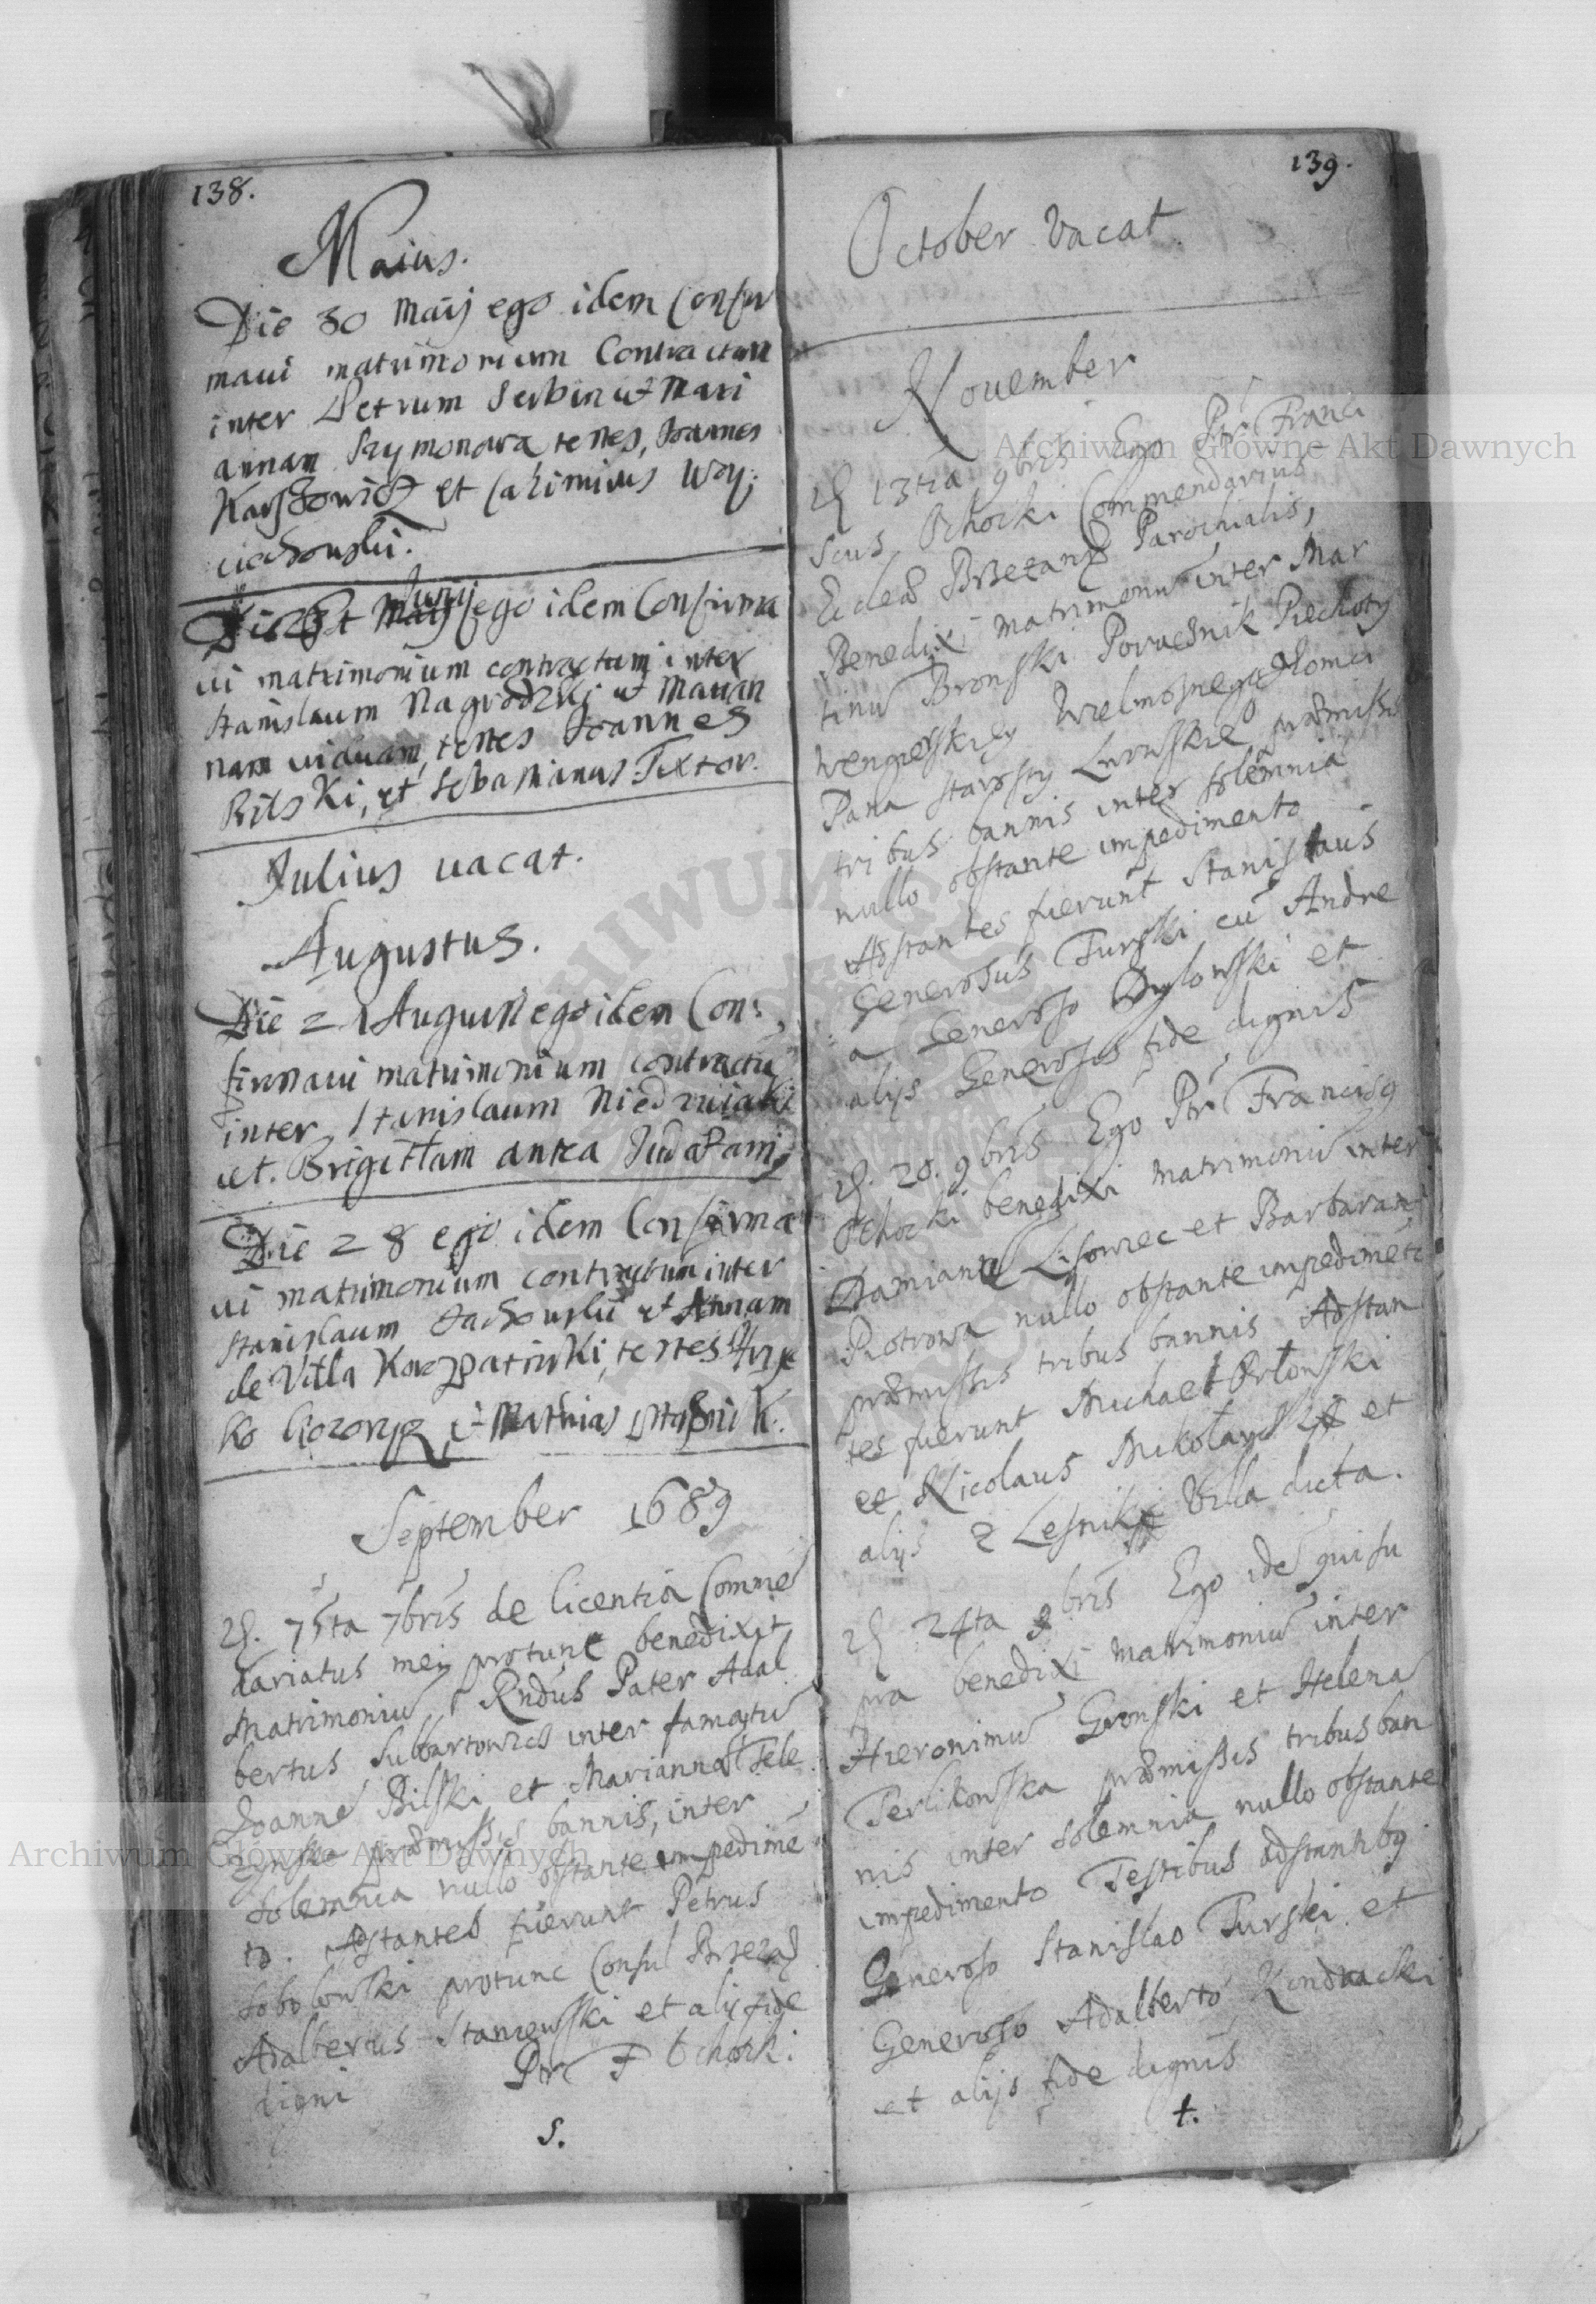 138.
Maius.
Die 30 Maij ego idem Confir
maui matrimonium Contractum
inter Petrum Serbin et Mari
annam Szymonowa testes, Joannes
et Casimirus Woy:
ciechouski.
Junij
Die Maij ego idem Confirma
ui matrimonium contractum inter
Stanislaum Nagrodzki et Marian
nam uiduam, testes Joannes
Bilski, et Sebastianus Textor.
Julius uacat.
Augustus.
Die 21 Augusti ego idem Con:
firmaui matrimonium contractu
inter Stanislaum
et Brigittam antea
Die 28 ego idem Confirma
ui matrimonium contractum inter
Stanislaum et Annam
de Villa testes
ko et Mathias
September 1689
7bris de licentia Comme
dariatus mei protunc benedixit
Matrimoniu Rndus Pater Adal
bertus inter famatu
Joanne Bilski et Marianna Tele
zynska præmissis bannis, inter
solemnia nullo obstante impedime
to. Adstantes fuerunt Petrus
Sobolowski protunc Consul Brzezan
Adalbertus Staniewski et alij fide
digni Pr F Ochocki.
S.
139.
October Vacat
Nouember
D 13tia 9bris Ego Pr Franci
scus Ochocki Commendarius
Eccles Brzezan Parochialis,
Benedixi matrimoniu inter Mar
tinu Bronski Porucznik Piechoty
Wengierskiey Wielmoznego
Pana starosty Lwowskie præmissis
tribus bannis inter solemnia
nullo obstante impedimento
Adstantes fuerunt Stanislaus
Generosus Turski cu Andre
a Generoso et
alijs Generosis fide dignis
D. 20. 9bris Ego Pr Francisq
Ochocki benedixi matrimoniu inter
Damianu Lisowiec et Barbaram
Piotrowa nullo obstante impedimeto
præmissis tribus bannis Adstan
tes fuerunt Michael Orłowski
et Nicolaus et
alijs z Lesnik Villa dicta.
D 24ta 9bris Ego ide qui su
pra benedixi matrimoniu inter
Hieronimu Gronski et Helena
Terlikowska præmissis tribus ban
nis inter solemnia nullo obstante
impedimento Testibus adstantibq
Generoso Stanislao Turski et
Generoso Adalberto
et alijs fide dignis
t.
Archiwum Główne Akt Dawnych
Archiwum Główne Akt Dawnych